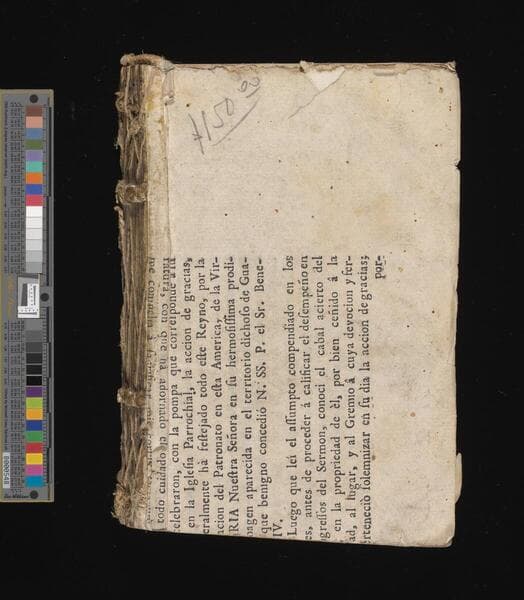 #150 00
todo cuidado el opulen
celebraron, con la pompa que corresponde á su
en la Iglesia Parrochial, la accion de gracias,
eralmente há festejado todo este Reyno, por la
acion del Patronato en esta America, de la Vir-
RIA Nuestra Señora en su hermosissima prodi-
agen aparecida en el territorio dichoso de Gua-
que benigno concedió N. SS. P. el Sr. Bene-
IV.
Luego que leí el assumpto compendiado en los
es, antes de proceder à calificar el desempeño en
ogressos del Sermon, conocí el cabal acierto del
en la propriedad de èl, por bien ceñido á la
ad, al lugar, y al Gremio á cuya devocion y fer-
erteneció solemnizar en su dia la accion de gracias;
por-